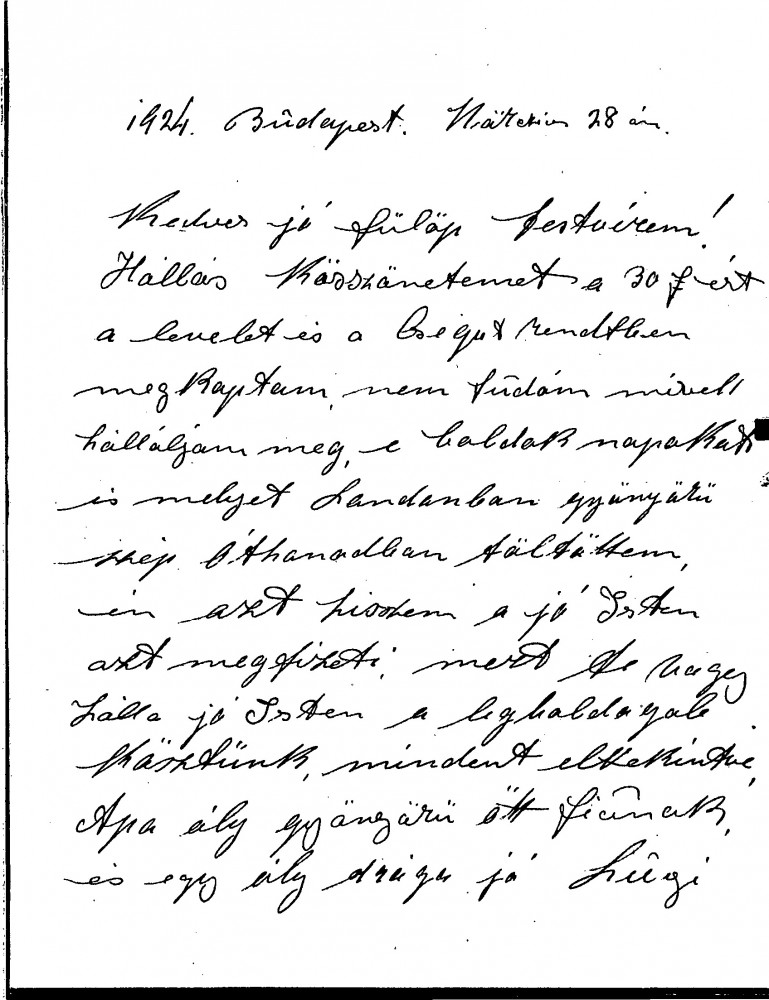 1924. Büdapest. Március 28 án.
Kedves jó Fülöp testvérem!
Hállás Köszönetemet a 30 f ért
a levelet és a Csigut rendtben
megKaptam, nem tüdom mivell
hálláljam meg, e boldoK napoKat
is melyet Londonban gyönyörü
szép óthonodban töltöttem,
én azt hiszem a jó Isten
azt megfizeti, mert te vagy
hálla jó Isten a legboldogab
KösztünK, mindent eltekintve,
Apa oly gyönyörü ött fiúnaK,
és egy oly drága jó